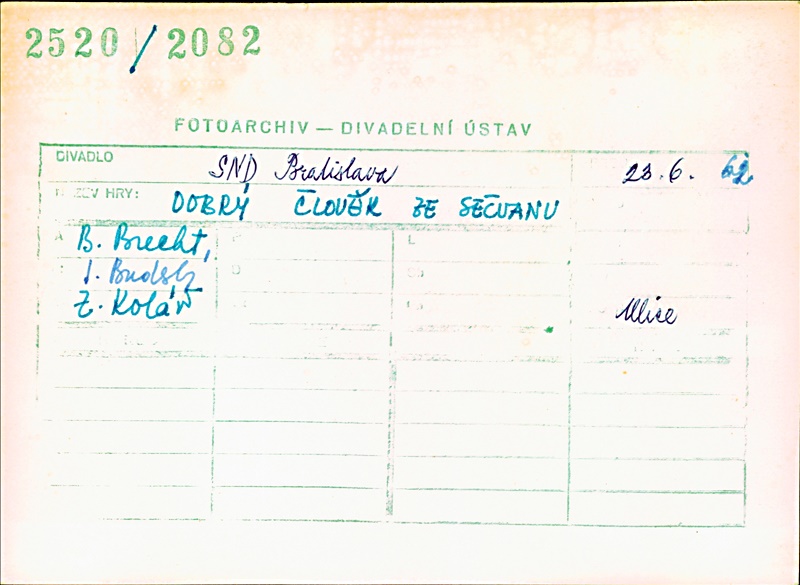 2520/2082
FOTOARCHIV — DIVADELNÍ ÚSTAV
DIVADLO SND Bratislava 23.6. 62
NÁZEV HRY: DOBRÝ ČLOVĚK ZE SEČUANU
A B. Brecht,
J. Budský
Z. Kolář Ulice